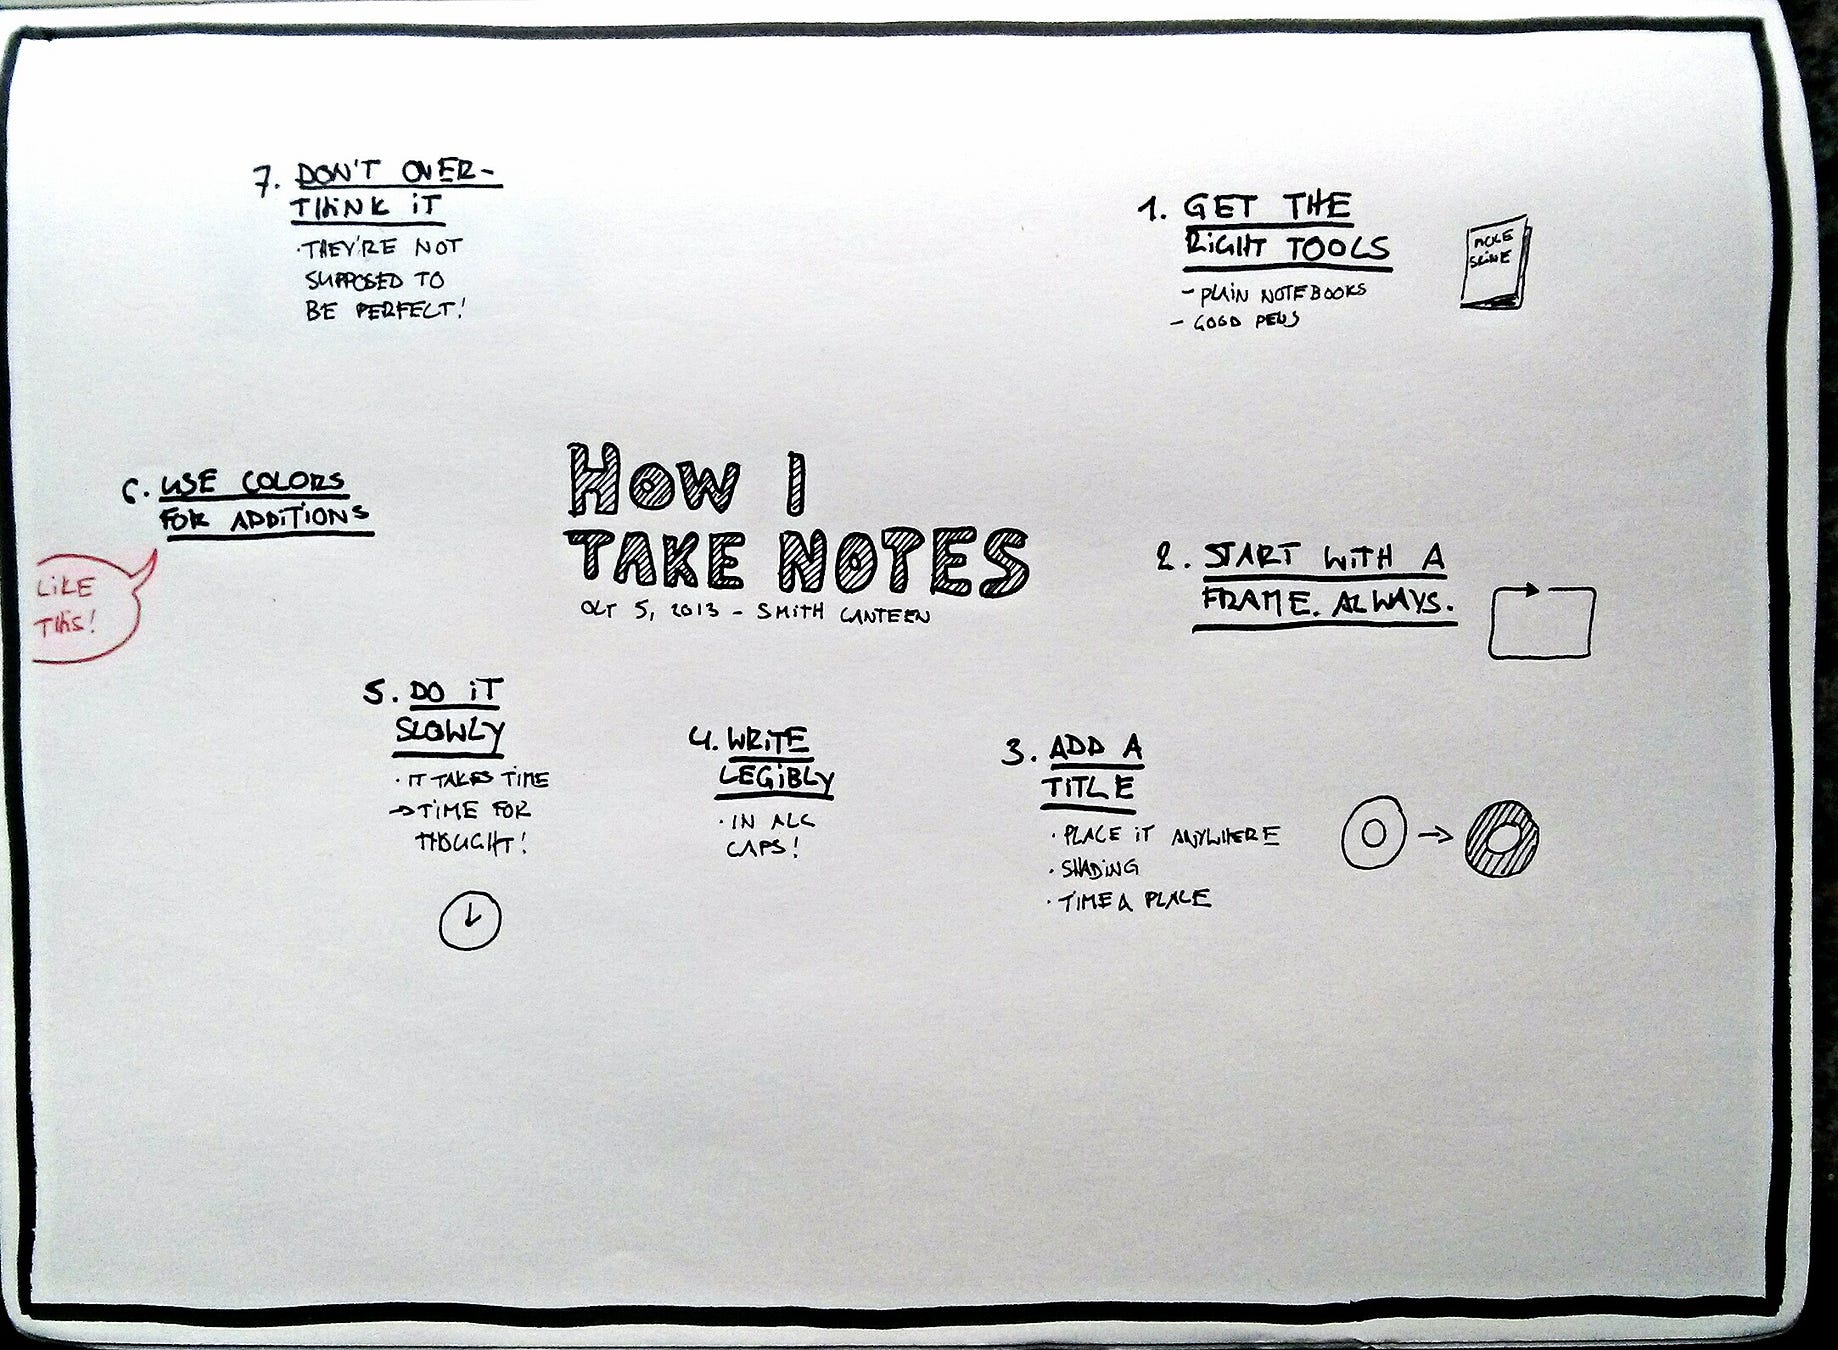 HOW I
TAKE NOTES
OCT 5, 2013 - SMITH CANTEEN
1. GET THE
RIGHT TOOLS
- PLAIN NOTEBOOKS
- GOOD PENS
MOLE
SKINE
2. START WITH A
FRAME. ALWAYS.
3. ADD A
TITLE
· PLACE IT ANYWHERE
· SHADING
· TIME & PLACE
4. WRITE
LEGIBLY
· IN ALL
CAPS!
5. DO IT
SLOWLY
· IT TAKES TIME
→ TIME FOR
THOUGHT!
6. USE COLORS
FOR ADDITIONS
LIKE
THIS!
7. DON'T OVER-
THINK IT
· THEY'RE NOT
SUPPOSED TO
BE PERFECT!